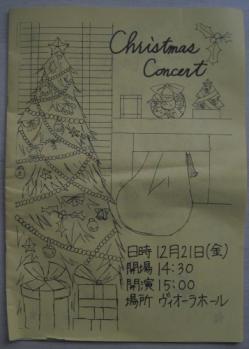 Christmas
Concert
日時 12月21日(金)
開場 14:30
開演 15:00
場所 ヴィオーラホール